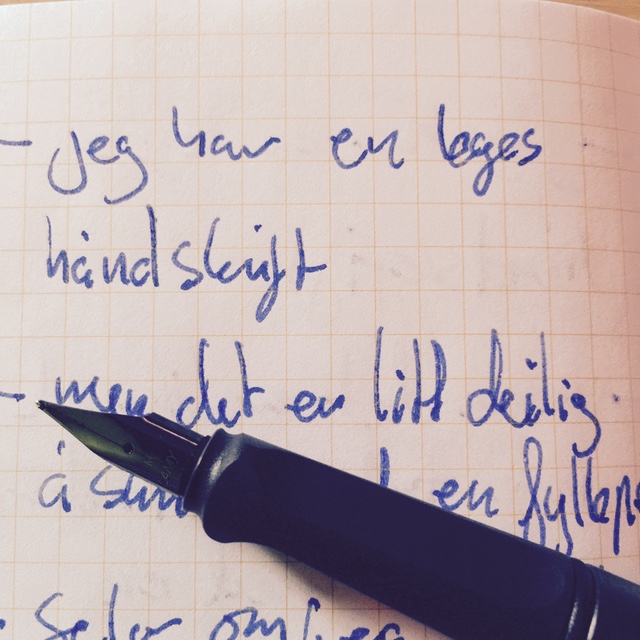 - jeg har en leges
håndskrift
- men det er litt deilig
å en